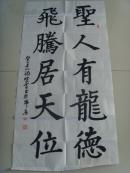 聖人有龍德
飛騰居天位